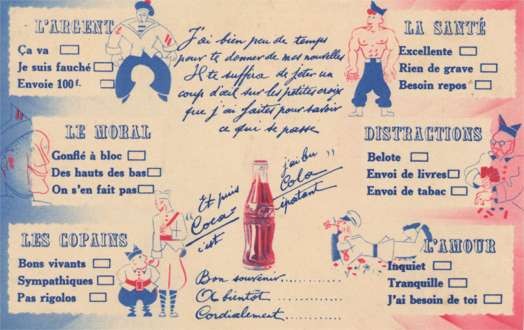 L'ARGENT
Ça va
Je suis fauché
Envoie 100 f.
J'ai bien peu de temps
pour te donner de mes nouvelles
Il te suffira de jeter un
coup d'œil sur les petites croix
que j'ai faites pour savoir
ce que se passe
LA SANTÉ
Excellente
Rien de grave
Besoin repos
LE MORAL
Gonflé à bloc
Des hauts des bas
On s'en fait pas
Et puis j'ai bu
"Coca-Cola"
c'est épatant
DISTRACTIONS
Belote
Envoi de livres
Envoi de tabac
LES COPAINS
Bons vivants
Sympathiques
Pas rigolos
Bon souvenir
A bientôt
Cordialement
L'AMOUR
Inquiet
Tranquille
J'ai besoin de toi